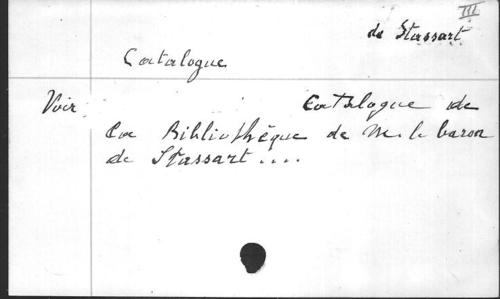 III
de Stassart
Catalogue
Voir Catalogue de
la Bibliothèque de M. le baron
de Stassart ....